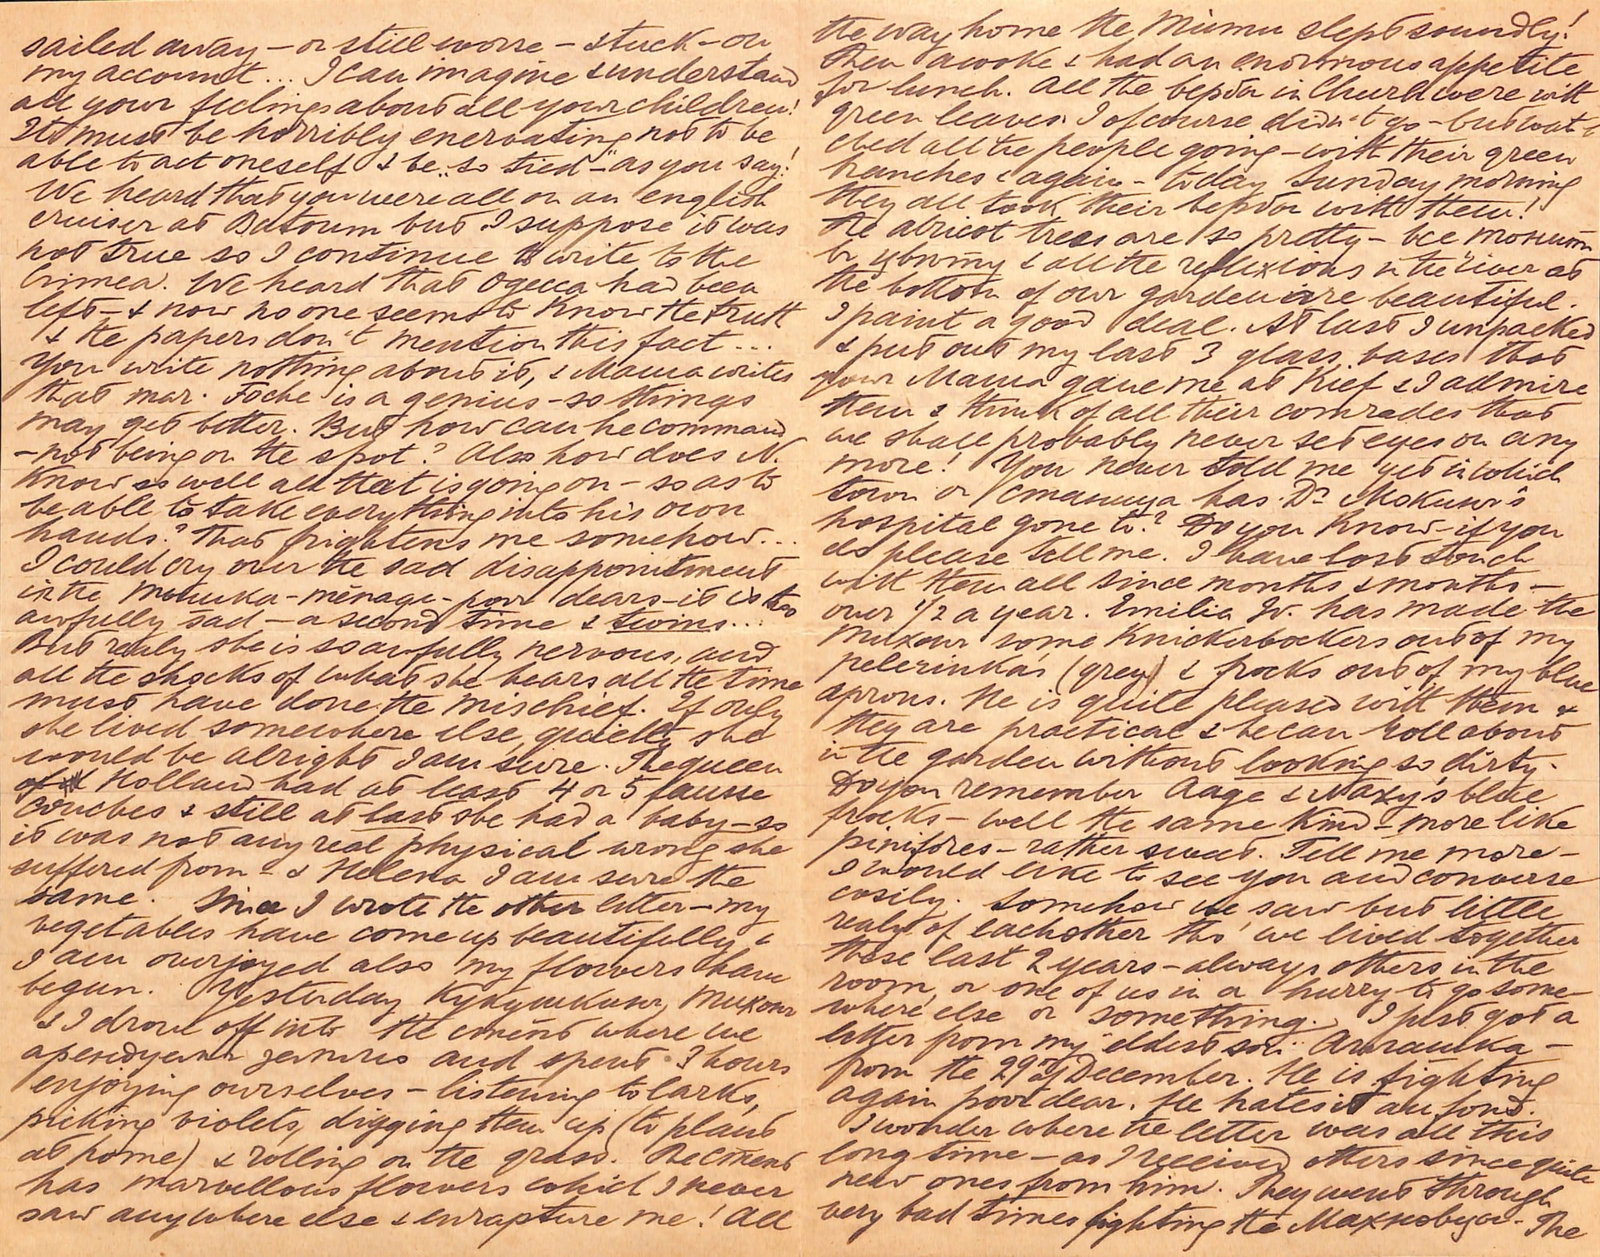 sailed away – or still worse – stuck – on
my account... I can imagine & understand
all your feelings about all your children!
It must be horribly enervating not to be
able to act oneself & be "so tied" – as you say!
We heard that you were all on an english
cruiser at Batoum but I suppose it was
not true so I continue to write to the
Crimea. We heard that Одесса had been
left – & now no one seems to know the truth
& the papers don't mention this fact ...
You write nothing about it, & Mama writes
that mar. Foche is a genius – so things
may get better. But how can he command
– not being on the spot? Also how does N.
know so well all that is going on – so as to
be able to take everything into his own
hands? That frightens me somehow...
I could cry over the sad disappointment
in the ménage – poor dears – it is too
awfully sad – a second time & twins...
But really she is so awfully nervous, and
all the shocks of what she hears all the time
must have done the mischief. If only
she lived somewhere else, quietly she
would be alright I am sure. The queen
of Holland had at least 4 or 5 fausse
couches & still at last she had a baby – so
it was not any real physical wrong she
suffered from – & Helena I am sure the
same. Since I wrote the other letter – my
vegetables have come up beautifully &
I am overjoyed also my flowers have
begun. Yesterday Кукушкин, Тихон
& I drove off into the where we
and spent 3 hours
enjoying ourselves – listening to larks,
picking violets, digging them up (to plant
at home) & rolling on the grass. The
has marvellous flowers which I never
saw anywhere else & enrapture me! All
the way home the Mimu slept soundly!
Then awoke & had an enormous appetite
for lunch. All the верба in Church were with
green leaves. I of course didn't go – but wat-
ched all the people going – with their green
branches & again – today Sunday morning
they all took their верба with them!
The abricot trees are so pretty – все
& all the reflexions in the river at
the bottom of our garden are beautiful.
I paint a good deal. At last I unpacked
& put out my last 3 glass vases that
your Mama gave me at Kief & I admire
them & think of all their comrades that
we shall probably never set eyes on any
more! You never told me yet in which
town or станица has Dr
hospital gone to? Do you know – if you
do please tell me. I have lost touch
with them all since months & months –
over ½ a year. Emilia Iv. has made the
some Knickerbockers out of my
pelerinka's (grey) & frocks out of my blue
aprons. He is quite pleased with them &
they are practical & he can roll about
in the garden without looking so dirty.
Do you remember Aage & Maxy's blue
frocks – well the same kind – more like
pinifores – rather sweet. Tell me more –
I would like to see you and converse
cosily. Somehow we saw but little
realy of eachother tho' we lived together
these last 2 years – always others in the
room, or one of us in a hurry to go some-
where else or something. I just got a
letter from my eldest son
from the 29th of December. He is fighting
again poor dear. He hates it au fond.
I wonder where the letter was all this
long time – as I received others since quite
new ones from him. They went through
very bad times fighting the Махновцы. The